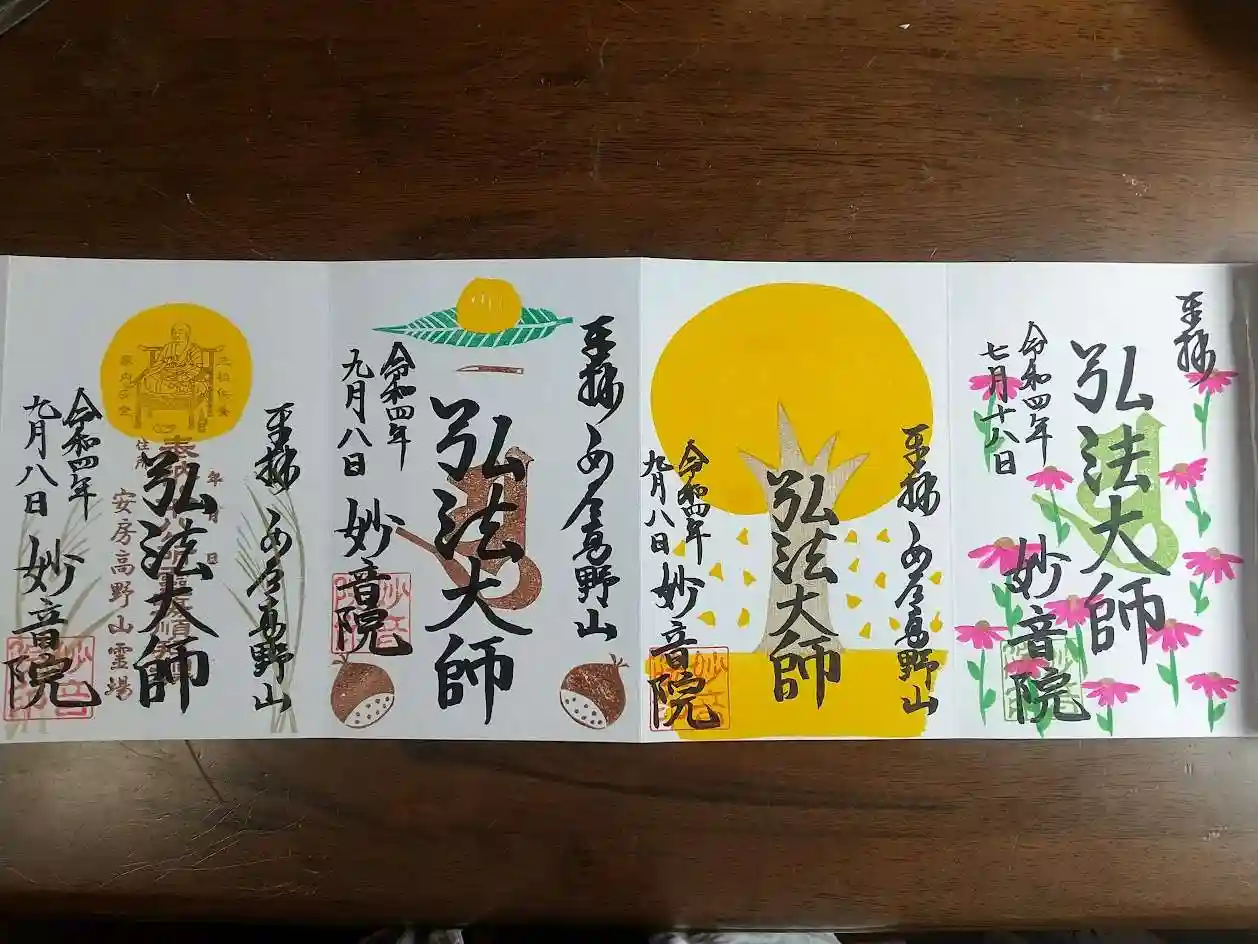 奉拝
弘法大師
令和四年
七月十八日
妙音院
奉拝 安房高野山
弘法大師
令和四年
九月八日 妙音院
奉拝 安房高野山
弘法大師
令和四年
九月八日 妙音院
奉拝 安房高野山
先祖供養
家内安全
年月日
弘法大師
住所
安房高野山霊場
令和四年
九月八日 妙音院